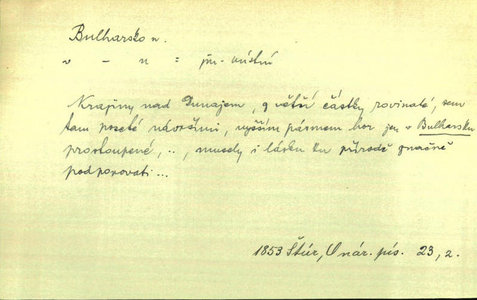 Bulharsko n.
v - n = jm. místní
Krajiny nad Dunajem, z větší částky rovinaté, sem
tam poseté návršími, vyšším pásmem hor jen v Bulharsku
prostoupené, .., musely i lásku ku přírodě značně
podporovati...
1853 Štúr, O nár. pís. 23, 2.